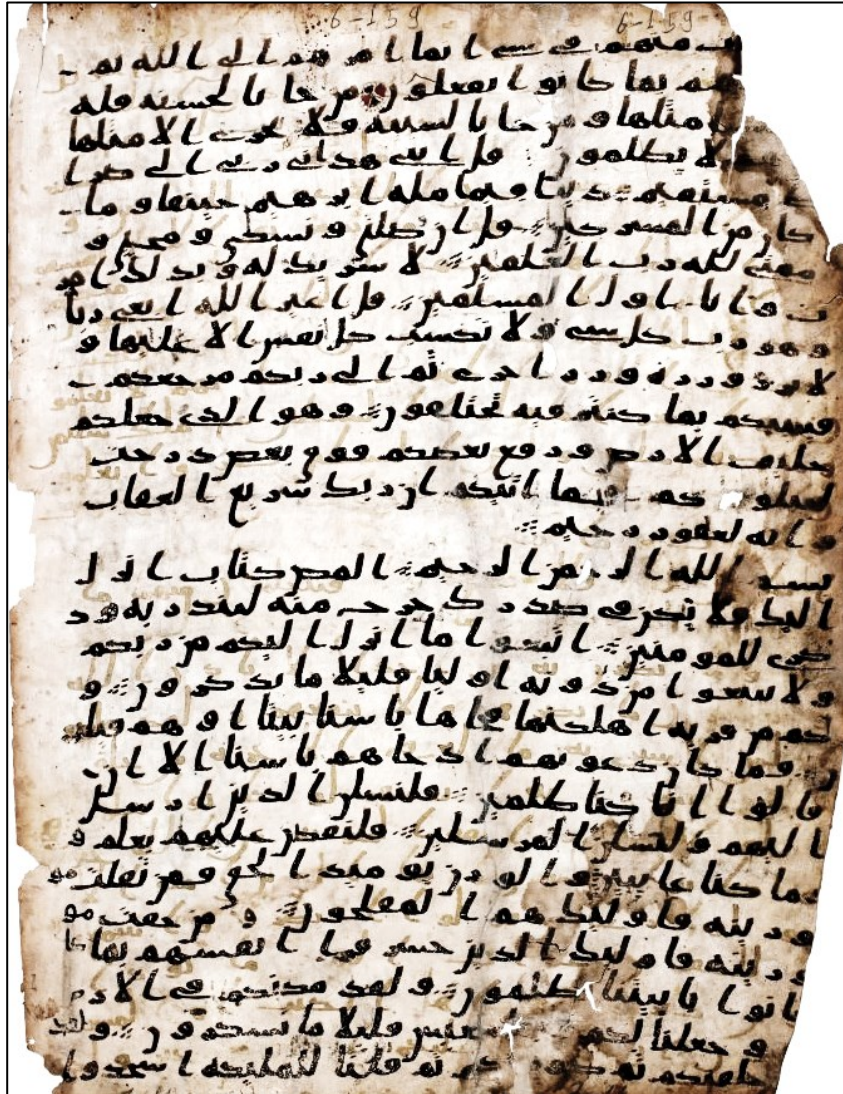 6-159 6-159
ت منهم في شي انما امرهم الى الله ثم
هم بما كانوا يفعلون من جا بالحسنه فله
امثلها ومن جا بالسييه فلا يجزى الا مثلها
لا يظلمون قل انني هداني ربي الى صرا
ط مستقيم دينا قيما مله ابرهيم حنيفا وما
كان من المشركين قل ان صلتي ونسكي ومحيي و
مماتي لله رب العلمين لا شريك له وبذلك امر
ت وانا اول المسلمين قل اغير الله ابغي ربا
وهو رب كل شي ولا تكسب كل نفس الا عليها و
لا تزر وزره وزر اخرى ثم الى ربكم مرجعكم
فينبيكم بما كنتم فيه تختلفون وهو الذي جعلكم
خليف الارض ورفع بعضكم فوق بعض درجت
ليبلوكم فيما اتيكم ان ربك سريع العقاب
وانه لغفور رحيم
بسم الله الرحمن الرحيم المص كتاب انزل
اليك فلا يكن في صدرك حرج منه لتنذر به وذ
كرى للمومنين اتبعوا ما انزل اليكم من ربكم
ولا تتبعوا من دونه اوليا قليلا ما تذكرون و
كم من قريه اهلكنها فجاها باسنا بيتا او هم قيلو
ن فما كان دعويهم اذ جاهم باسنا الا ان
قالوا انا كنا ظلمين فلنسلن الذين ارسل
اليهم ولنسلن المرسلين فلنقصن عليهم بعلم و
ما كنا غايبين والوزن يوميذ الحق فمن ثقلت مو
زينه فاوليك هم المفلحون ومن خفت مو
زينه فاوليك الذين خسروا انفسهم بما كا
نوا بايتنا يظلمون ولقد مكنكم في الار
ض وجعلنا لكم معيش قليلا ما تشكرون ولقد
خلقنكم ثم صورنكم ثم قلنا للمليكه اسجدوا